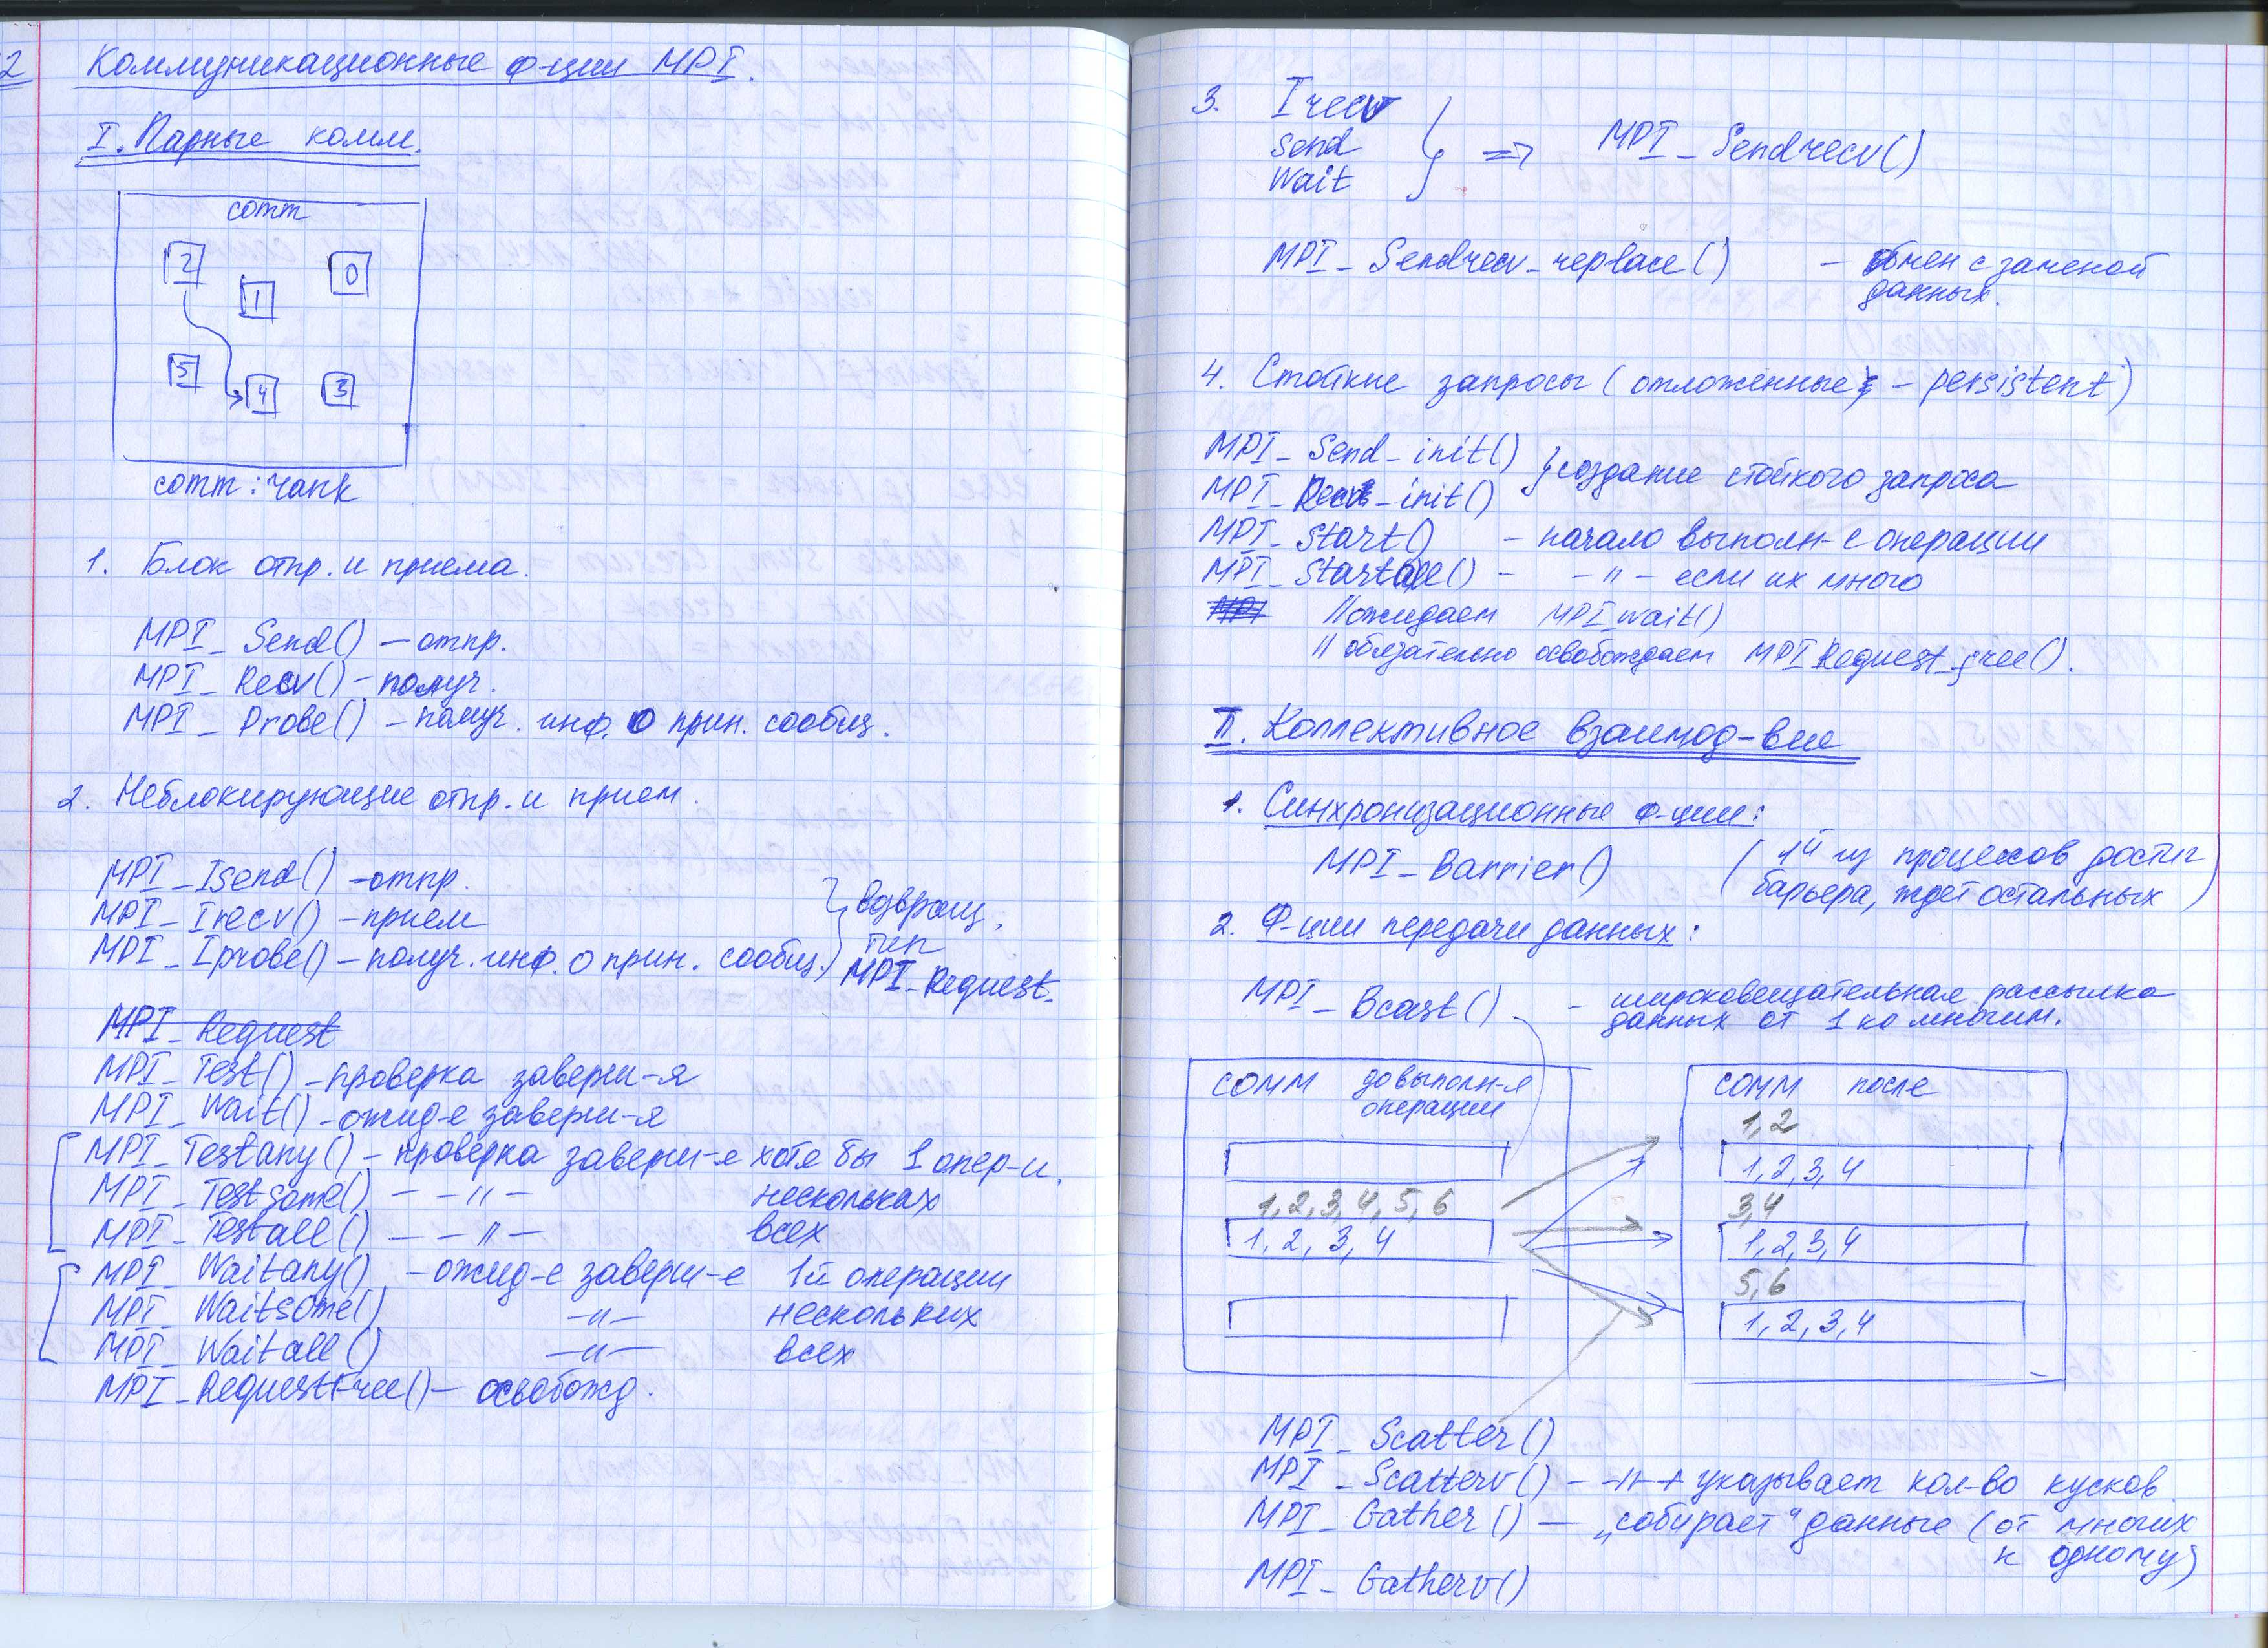 2
Коммуникационные ф-ции MPI.
I. Парные комм.
comm
2
0
1
5
4
3
comm : rank
1. Блок отпр. и приема.
MPI_Send() – отпр.
MPI_Recv() – получ.
MPI_Probe() – получ. инф. о прин. сообщ.
2. Неблокирующие отпр. и прием.
MPI_Isend() – отпр.
MPI_Irecv() – прием
MPI_Iprobe() – получ. инф. о прин. сообщ.
} возвращ.
тип
MPI_Request.
MPI_Request
MPI_Test() – проверка заверш-я
MPI_Wait() – ожид-е заверш-я
MPI_Testany() – проверка заверш-е хотя бы 1 опер-и.
MPI_Testsome() – – " – нескольках
MPI_Testall() – – " – всех
MPI_Waitany() – ожид-е заверш-е 1й операции
MPI_Waitsome() – " – нескольких
MPI_Waitall() – " – всех
MPI_RequestFree() – освобожд.
3. Irecv
Send
Wait
} => MPI_Sendrecv()
MPI_Sendrecv_replace() – обмен с заменой
данных.
4. Стойкие запросы (отложенные – persistent)
MPI_Send_init()
MPI_Recv_init()
} создание стойкого запроса
MPI_Start() – начало выполн-е операции
MPI_Startall() – – " – если их много
MPI
// ожидаем MPI_Wait()
// обязательно освобождаем MPI Request_free().
II. Коллективное взаимод-вие
1. Синхронизационные ф-ции:
MPI_Barrier() (1й из процессов достиг
барьера, ждет остальных)
2. Ф-ции передачи данных:
MPI_Bcast() – широковещательная рассылка
данных от 1 ко многим.
COMM до выполн-я
операции
1, 2, 3, 4, 5, 6
1, 2, 3, 4
COMM после
1, 2
1, 2, 3, 4
3, 4
1, 2, 3, 4
5, 6
1, 2, 3, 4
MPI_Scatter()
MPI_Scatterv() – –"– + указывает кол-во кусков
MPI_Gather() – „собирает“ данные (от многих
к одному)
MPI_Gatherv()